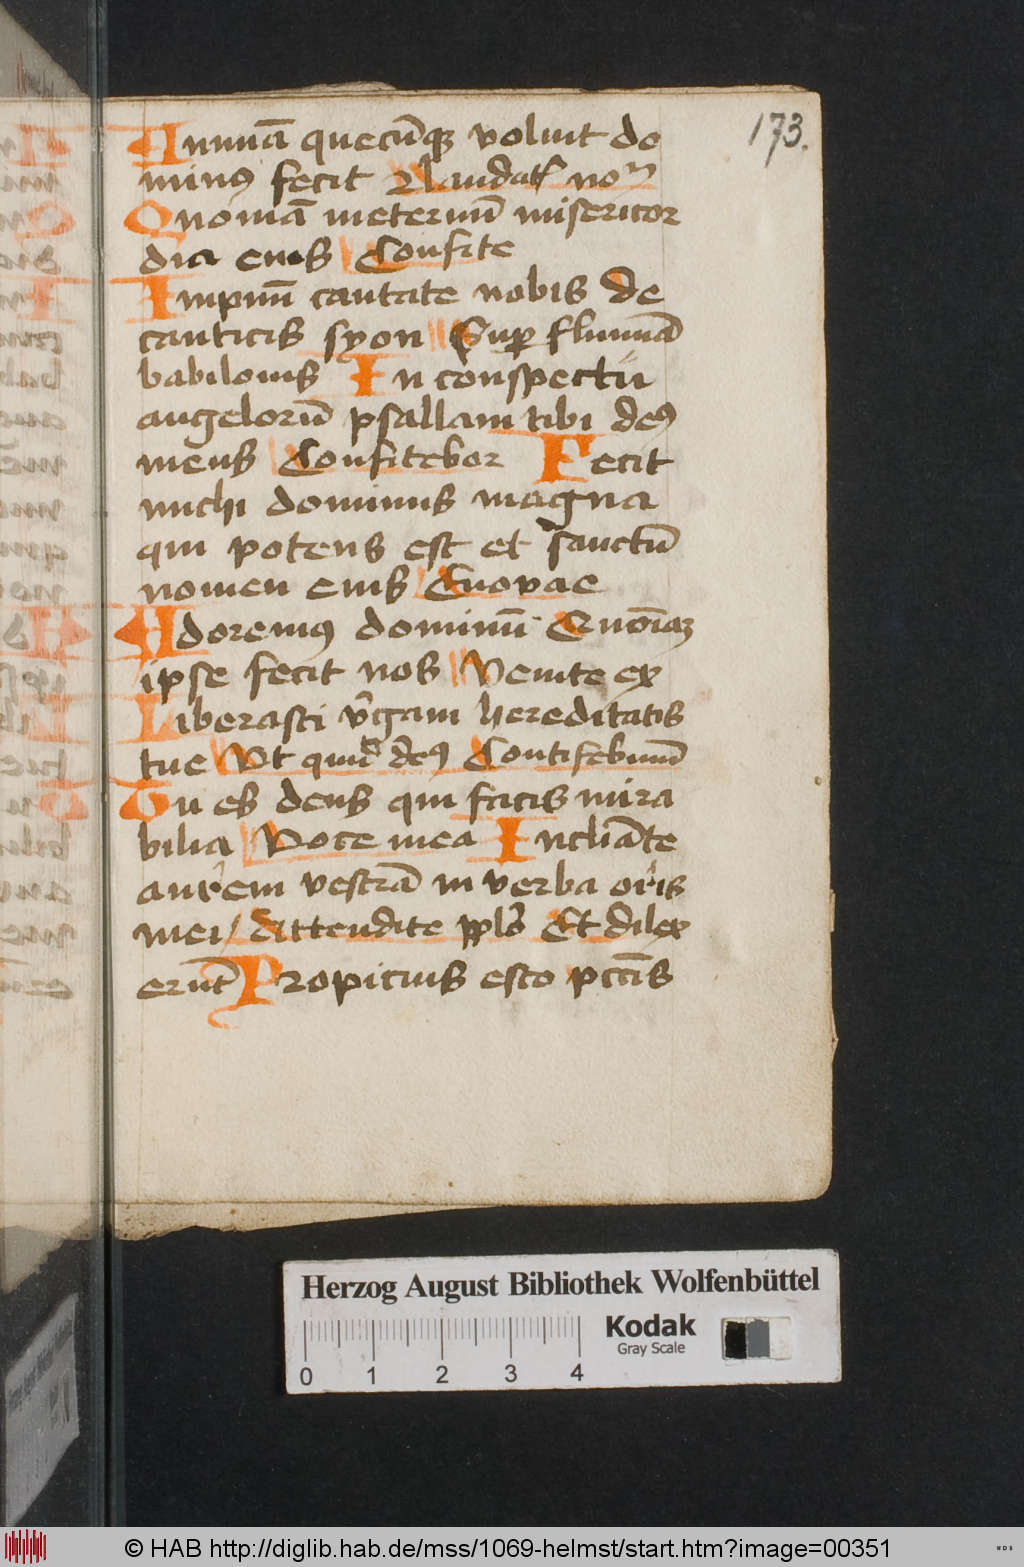 173.
Annuā quecūqꝫ voluit do
minꝰ fecit Laudate no
Quoniā ineternū misericor
dia eius Confite
Impnū cantate nobis de
canticis syon Sup flumiā
babilonis In conspectu
angelorū psallam tibi deꝰ
meus Confitebor Fecit
michi dominus magna
qui potens est et sanctū
nomen eius Euovae
Adoremꝰ dominū Quōiaꝫ
ipse fecit nos Venite ex
Liberasti v̄gam hereditatis
tue Vt quid deꝰ Confitebimū
Tu es deus qui facis mira
bilia Voce mea Incliāte
aurem vestrā in verba oris
mei / Attendite ppl̄s Et dilex
erūt Propicius esto pccīs
Herzog August Bibliothek Wolfenbüttel
Kodak
Gray Scale
0 1 2 3 4
© HAB http://diglib.hab.de/mss/1069-helmst/start.htm?image=00351